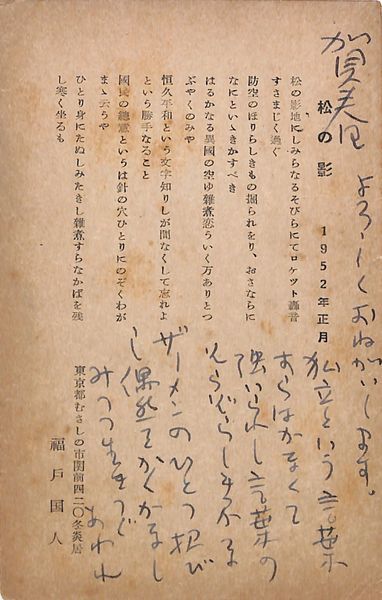 賀
よろしくおねがいします。
松の影　1952年正月
松の影地にしみらなるそびらにてロケツト轟音
すさまじく過ぐ
防空のほりらしきもの掘られをり、おさならに
なにといゝきかすべき
はるかなる異國の空ゆ雜煮恋ういく万ありとつ
ぶやくのみや
恒久平和という文字知りしが間なくして忘れよ
という勝手なること
國民の總意というは針の穴ひとりにのぞくわが
まゝ云うや
ひとり身にたぬしみたきし雜煮すらなかばを残
し寒く坐るも
東京都むさしの市関前四二〇冬炎居
福戸国人
独立という言葉
すらはかなくて
強いられし言葉の
そらぞらしき
ザーメンのひとつ択び
し偶然をかくかなし
みつつ生きつぐ
あわれ